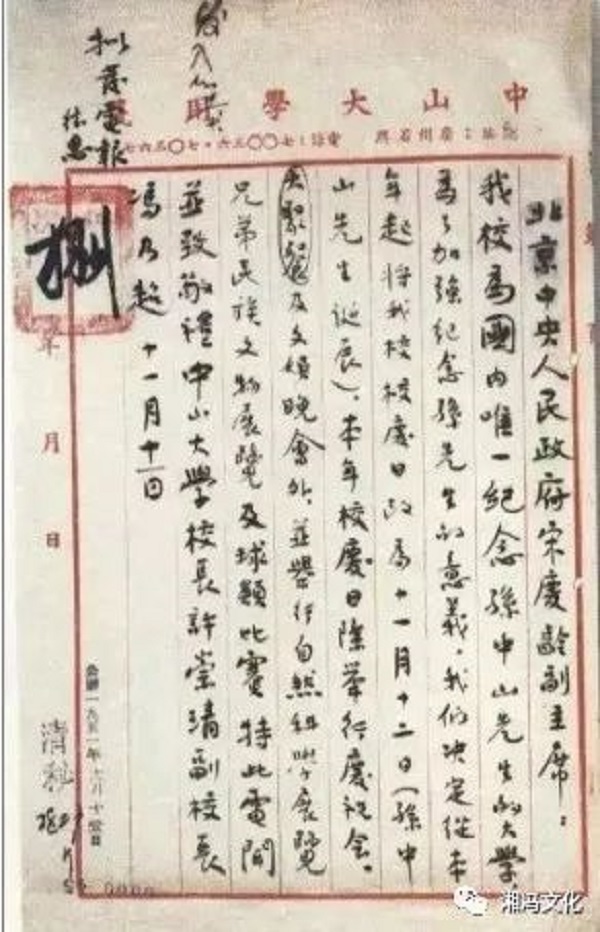 中山大學
廣州石牌 電話：七〇〇三六·七〇三六七
北京中央人民政府宋慶齡副主席：
我校為國内唯一紀念孫中山先生的大學
為了加強紀念孫先生的意義，我们决定從本
年起將我校校慶日改為十一月十二日（孫中
山先生诞辰）。本年校慶日除举行慶祝会、
大聚餐及文娱晚會外，並舉行自然科學展覽
兄弟民族文物展覽及球類比賽特此電聞
並致敬禮中山大學校長許崇清副校長
馮乃超 十一月十一日
拟發電报
年 月 日
湘冯文化